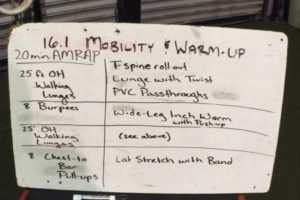 16.1 MOBILITY & WARM-UP
20 min AMRAP
T-Spine roll out
25 ft OH Lunge with Twist
Walking PVC Passthroughs
Lunges
8 Burpees Wide-Leg Inch Worm
with Push-up
25' OH
Walking (see above)
Lunges
8 Chest-to Lat Stretch with Band
Bar
Pull-ups